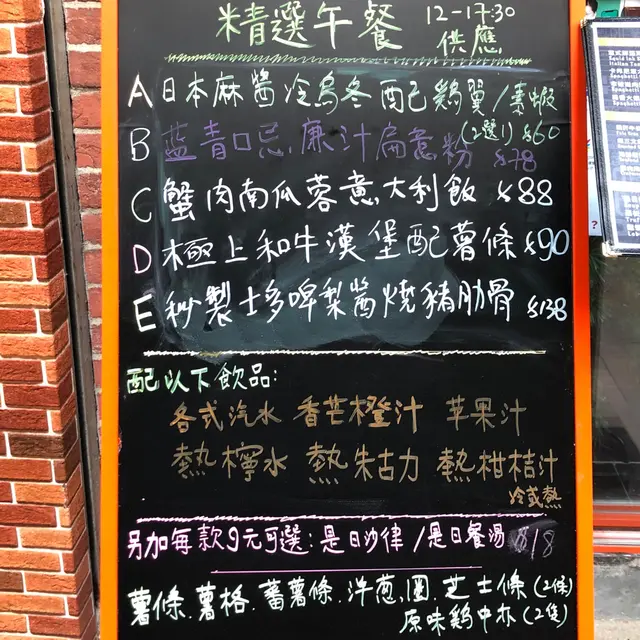 精選午餐 12-17:30
供應
A 日本麻醬冷烏冬配鷄翼/素蝦
(2選1) $60
B 蓝青口忌廉汁扁意粉 $78
C 蟹肉南瓜蓉意大利飯 $88
D 極上和牛漢堡配薯條 $90
E 秘製士多啤梨醬燒豬肋骨 $138
配以下飲品:
各式汽水 香芒橙汁 苹果汁
熱檸水 熱朱古力 熱柑桔汁
冷或熱
另加每款9元可選: 是日沙律/是日餐湯 $18
薯條.薯格.蕃薯條.洋葱圈.芝士條(2條)
原味鷄中亦(2隻)